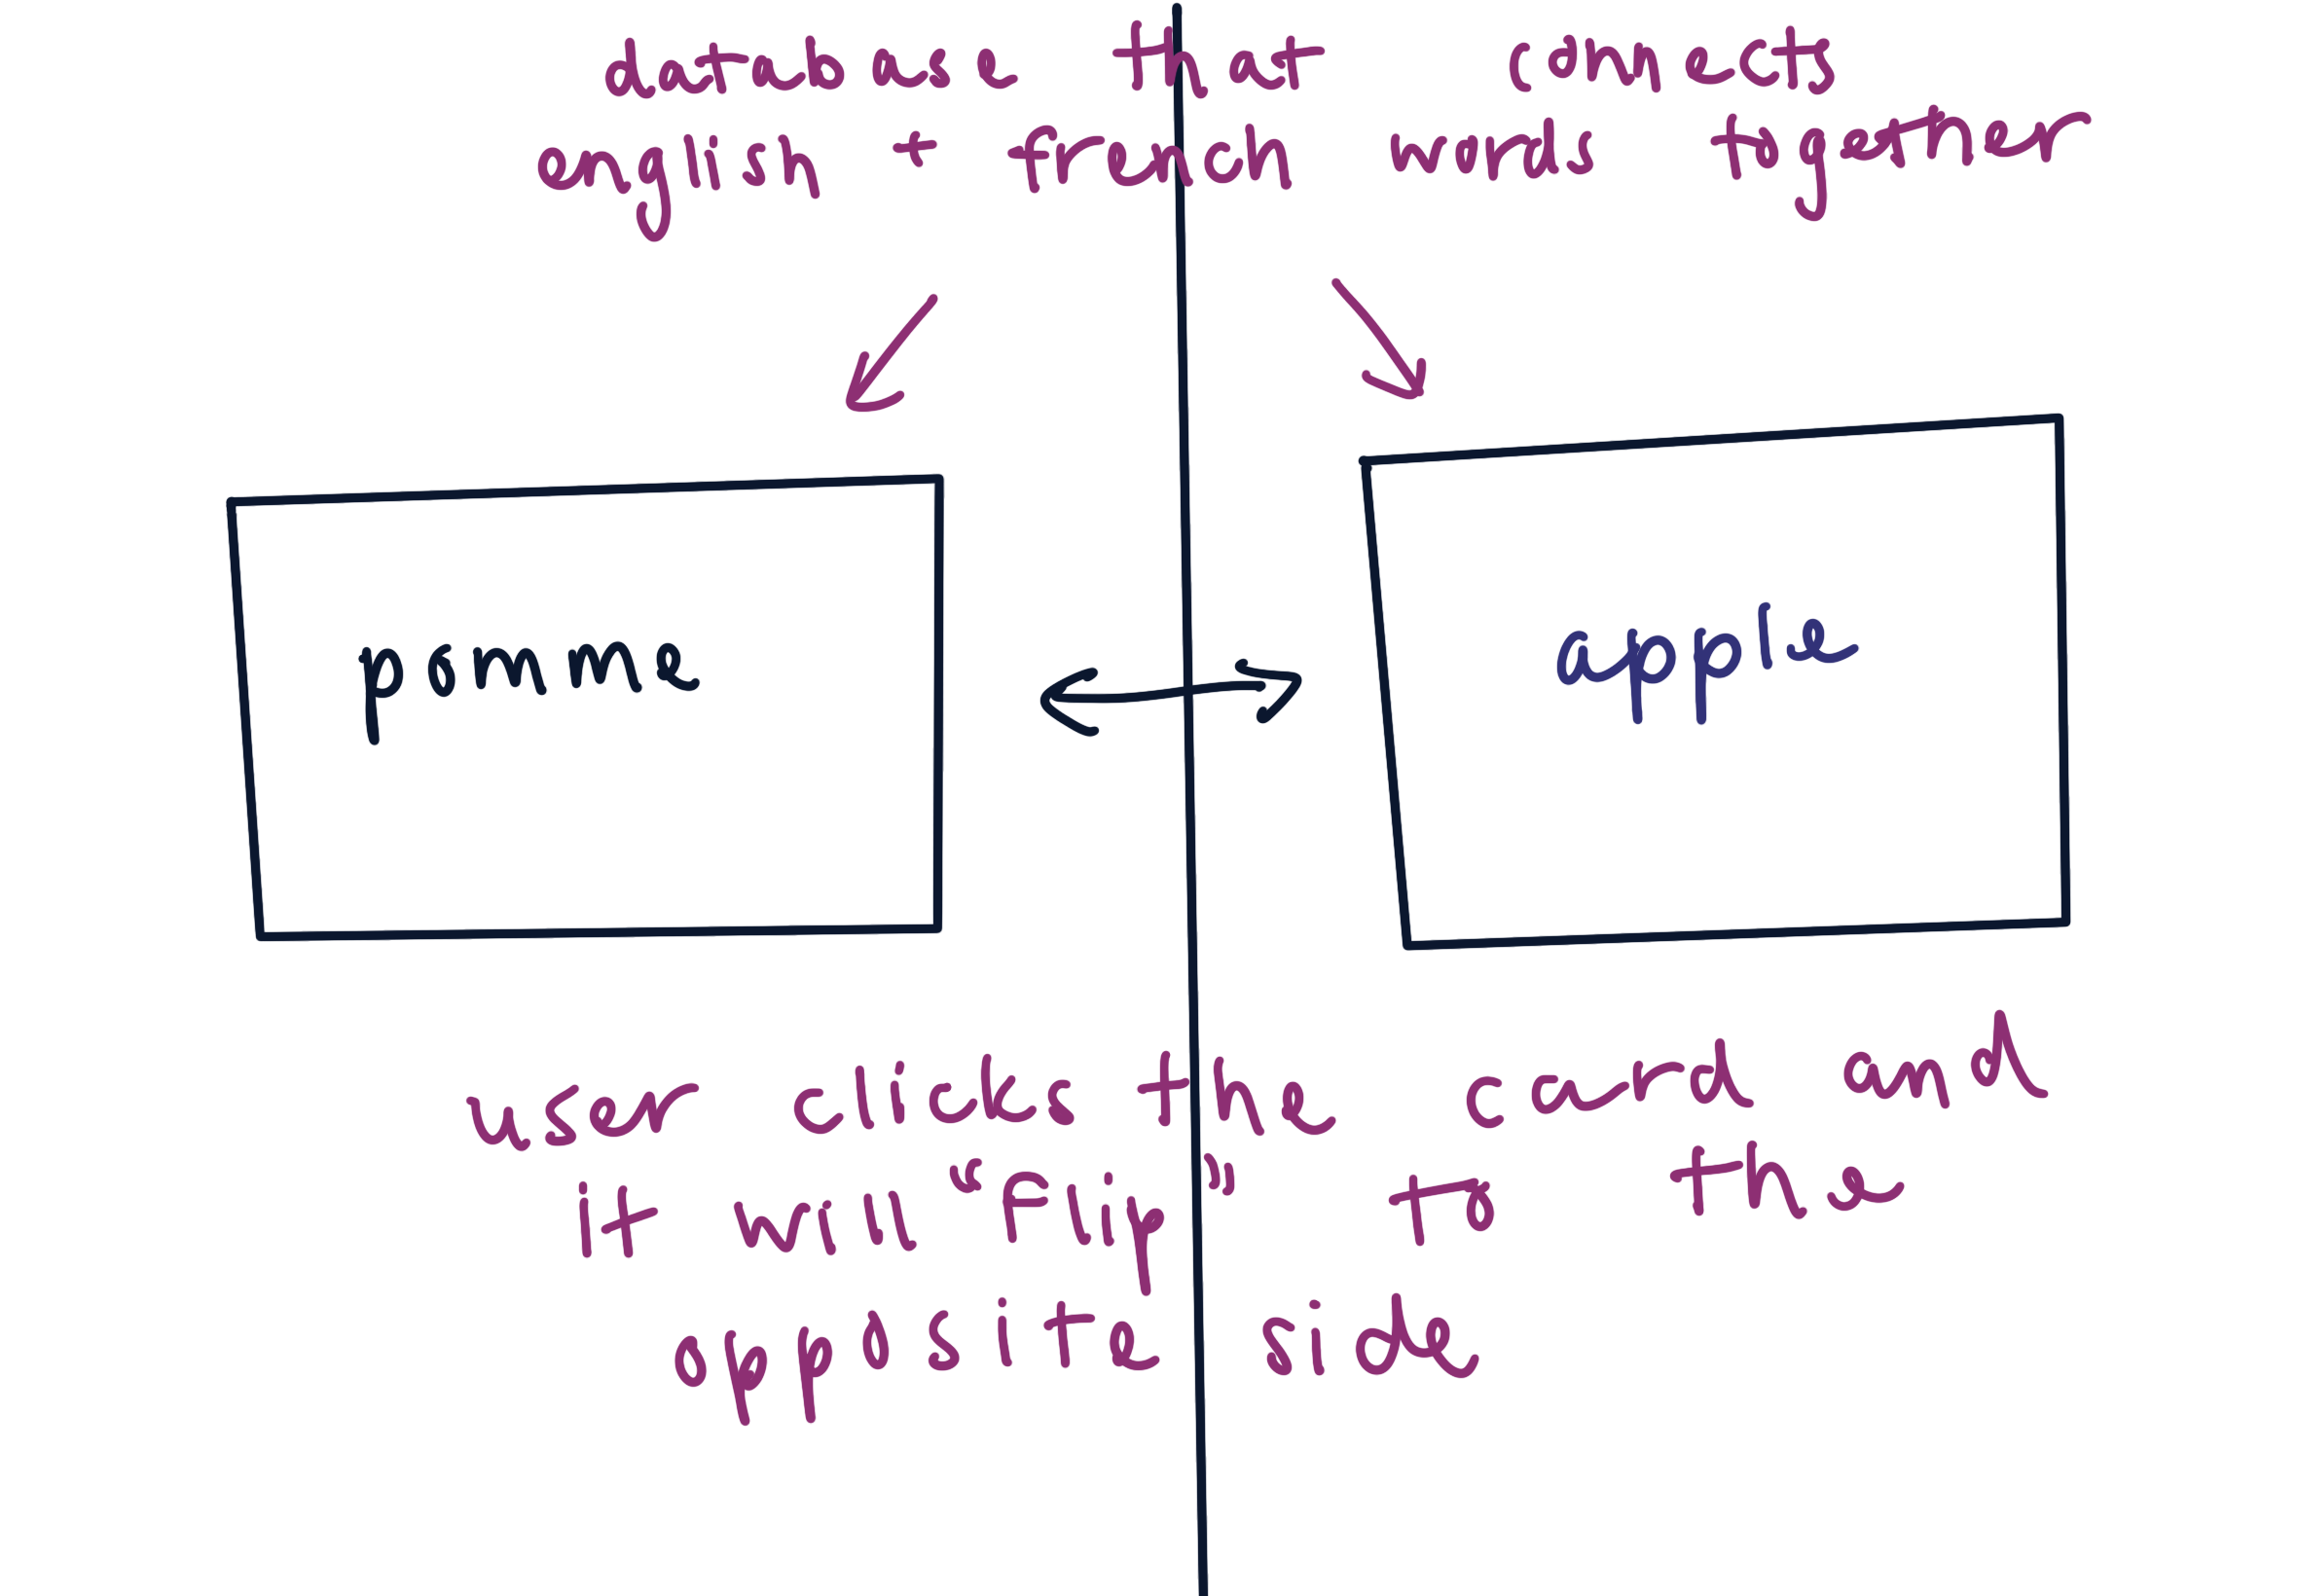 database that conects
english + french words together
pomme
apple
user clicks the card and
it will "flip" to the
opposite side